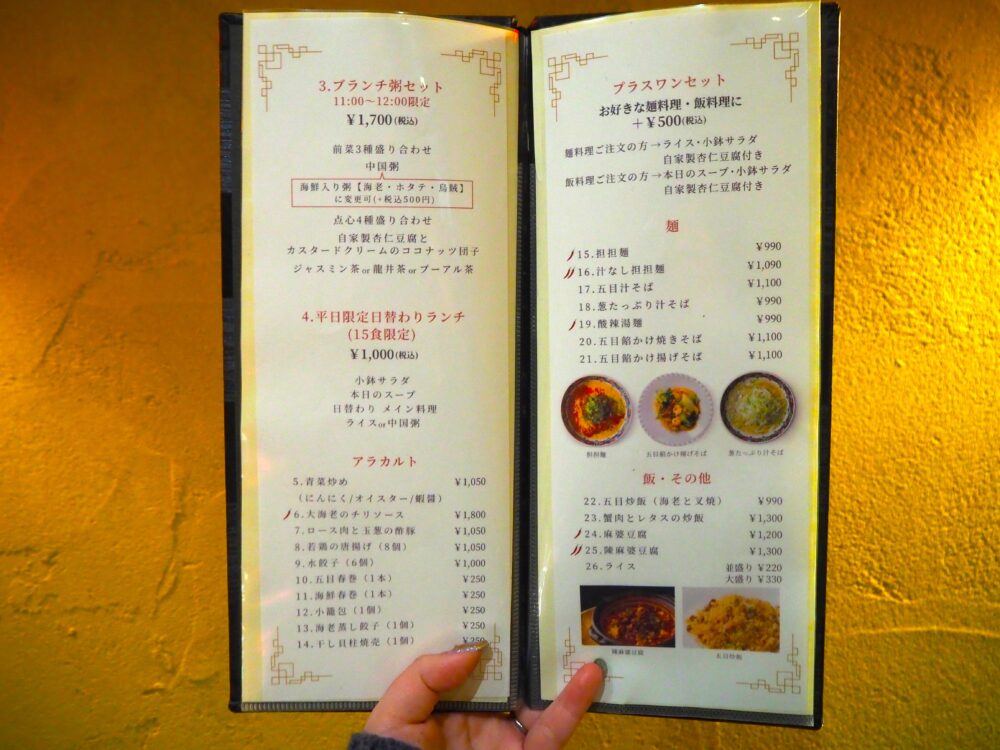 3.ブランチ粥セット
11:00～12:00限定
¥1,700(税込)
前菜3種盛り合わせ
中国粥
海鮮入り粥【海老・ホタテ・烏賊】
に変更可(+税込500円)
点心4種盛り合わせ
自家製杏仁豆腐と
カスタードクリームのココナッツ団子
ジャスミン茶or龍井茶orプーアル茶
4.平日限定日替わりランチ
(15食限定)
¥1,000(税込)
小鉢サラダ
本日のスープ
日替わり メイン料理
ライスor中国粥
アラカルト
5.青菜炒め ¥1,050
（にんにく/オイスター/蝦醤）
6.大海老のチリソース ¥1,800
7.ロース肉と玉葱の酢豚 ¥1,050
8.若鶏の唐揚げ（8個） ¥1,050
9.水餃子（6個） ¥1,000
10.五目春巻（1本） ¥250
11.海鮮春巻（1本） ¥250
12.小籠包（1個） ¥250
13.海老蒸し餃子（1個） ¥250
14.干し貝柱焼売（1個） ¥250
プラスワンセット
お好きな麺料理・飯料理に
＋¥500(税込)
麺料理ご注文の方→ライス・小鉢サラダ
自家製杏仁豆腐付き
飯料理ご注文の方→本日のスープ・小鉢サラダ
自家製杏仁豆腐付き
麺
15.担担麺 ¥990
16.汁なし担担麺 ¥1,090
17.五目汁そば ¥1,100
18.葱たっぷり汁そば ¥990
19.酸辣湯麺 ¥990
20.五目餡かけ焼きそば ¥1,100
21.五目餡かけ揚げそば ¥1,100
担担麺 五目餡かけ揚げそば 葱たっぷり汁そば
飯・その他
22.五目炒飯（海老と叉焼） ¥990
23.蟹肉とレタスの炒飯 ¥1,300
24.麻婆豆腐 ¥1,200
25.陳麻婆豆腐 ¥1,300
26.ライス 並盛り ¥220
大盛り ¥330
陳麻婆豆腐 五目炒飯